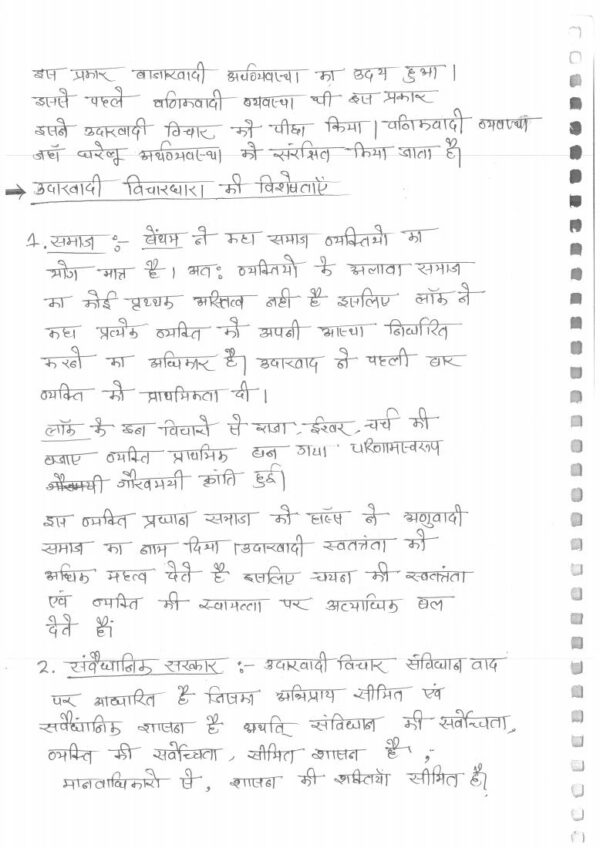 इस प्रकार बाजारवादी अर्थव्यवस्था का उदय हुआ।
इससे पहले वणिकवादी व्यवस्था थी इस प्रकार
इसने उदारवादी विचार को पीछा किया। वणिकवादी व्यवस्था
जहाँ घरेलू अर्थव्यवस्था को संरक्षित किया जाता है।
→ उदारवादी विचारधारा की विशेषताएँ
1. समाज :- बेंथम ने कहा समाज व्यक्तियो का
योग मात्र है। अतः व्यक्तियो के अलावा समाज
का कोई प्रथक अस्तित्व नही है इसलिए लॉक ने
कहा प्रत्येक व्यक्ति को अपनी आस्था निर्धारित
करने का अधिकार है। उदारवाद ने पहली बार
व्यक्ति को प्राथमिकता दी।
लॉक के इन विचारो से राजा, ईश्वर, चर्च की
बजाए व्यक्ति प्राथमिक बन गया परिणामस्वरूप
गौरवमयी क्रांति हुई।
इस व्यक्ति प्रधान समाज को हॉब्स ने अणुवादी
समाज का नाम दिया। उदारवादी स्वतन्त्रता को
अधिक महत्व देते है इसलिए चयन की स्वतंत्रता
एवं व्यक्ति की स्वायत्ता पर अत्याधिक बल
देते हैं।
2. संवैधानिक सरकार :- उदारवादी विचार संविधान वाद
पर आधारित है जिसका अभिप्राय सीमित एवं
सवैधानिक शासन है अर्थात् संविधान की सर्वोच्चता,
व्यक्ति की सर्वोच्चता, सीमित शासन है,
मानवाधिकारो से, शासन की शक्तियाँ सीमित है।